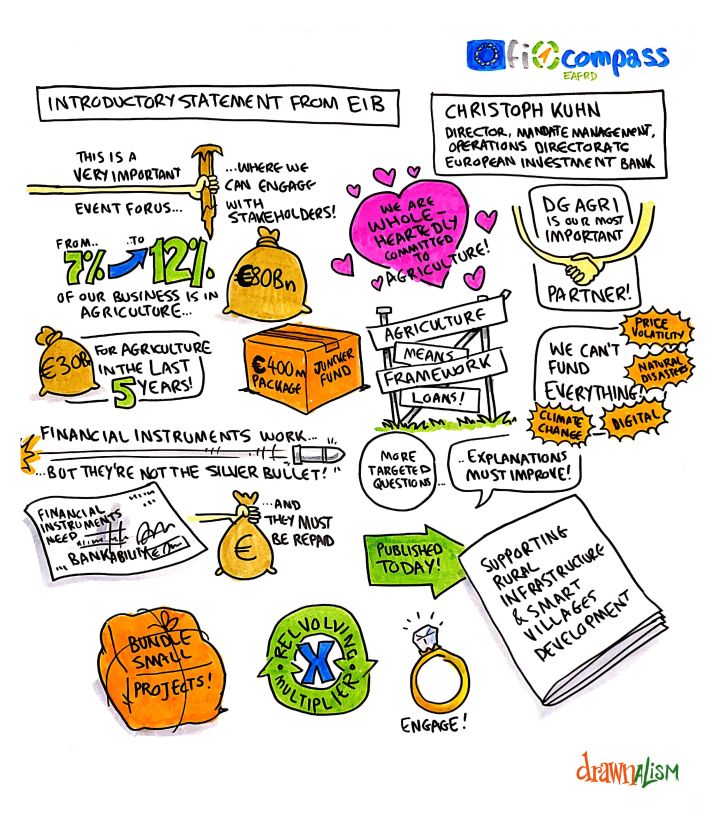 fi compass
EAFRD
INTRODUCTORY STATEMENT FROM EIB
CHRISTOPH KUHN
DIRECTOR, MANDATE MANAGEMENT,
OPERATIONS DIRECTORATE
EUROPEAN INVESTMENT BANK
THIS IS A
VERY IMPORTANT
EVENT FOR US...
...WHERE WE
CAN ENGAGE
WITH
STAKEHOLDERS!
WE ARE
WHOLE-
HEARTEDLY
COMMITTED
TO
AGRICULTURE!
DG AGRI
IS OUR MOST
IMPORTANT
PARTNER!
FROM.. ..TO
7% 12%
OF OUR BUSINESS IS IN
AGRICULTURE...
€80Bn
€30Bn
FOR AGRICULTURE
IN THE LAST
5 YEARS!
€400m
PACKAGE
JUNCKER
FUND
AGRICULTURE
MEANS
FRAMEWORK
LOANS!
WE CAN'T
FUND
EVERYTHING!
PRICE
VOLATILITY
NATURAL
DISASTERS
CLIMATE
CHANGE
DIGITAL
FINANCIAL INSTRUMENTS WORK...
...BUT THEY'RE NOT THE SILVER BULLET!"
MORE
TARGETED
QUESTIONS...
..EXPLANATIONS
MUST IMPROVE!
FINANCIAL
INSTRUMENTS
NEED
...BANKABILITY
€
...AND
THEY MUST
BE REPAID
PUBLISHED
TODAY!
SUPPORTING
RURAL
INFRASTRUCTURE
& SMART
VILLAGES
DEVELOPMENT
BUNDLE
SMALL
PROJECTS!
RELVOLVING
X
MULTIPLIER
ENGAGE!
drawnALISM